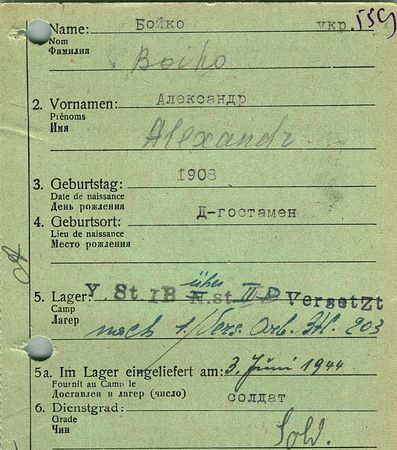 Name: Бойко укр.
Nom
Фамилия
Boiko
2. Vornamen: Александр
Prénoms
Имя
Alexandr
3. Geburtstag: 1908
Date de naissance
День рождения
4. Geburtsort: Д-гостамен
Lieu de naissance
Место рождения
5. Lager: St IB über st. II D Versetzt
Camp
Лагерь
nach 1./Vers. Arb. Btl. 203
5a. Im Lager eingeliefert am: 3. Juni 1944
Fournit au Camp le
Доставлен в лагерь (число)
6. Dienstgrad: солдат
Grade
Чин
Sold.